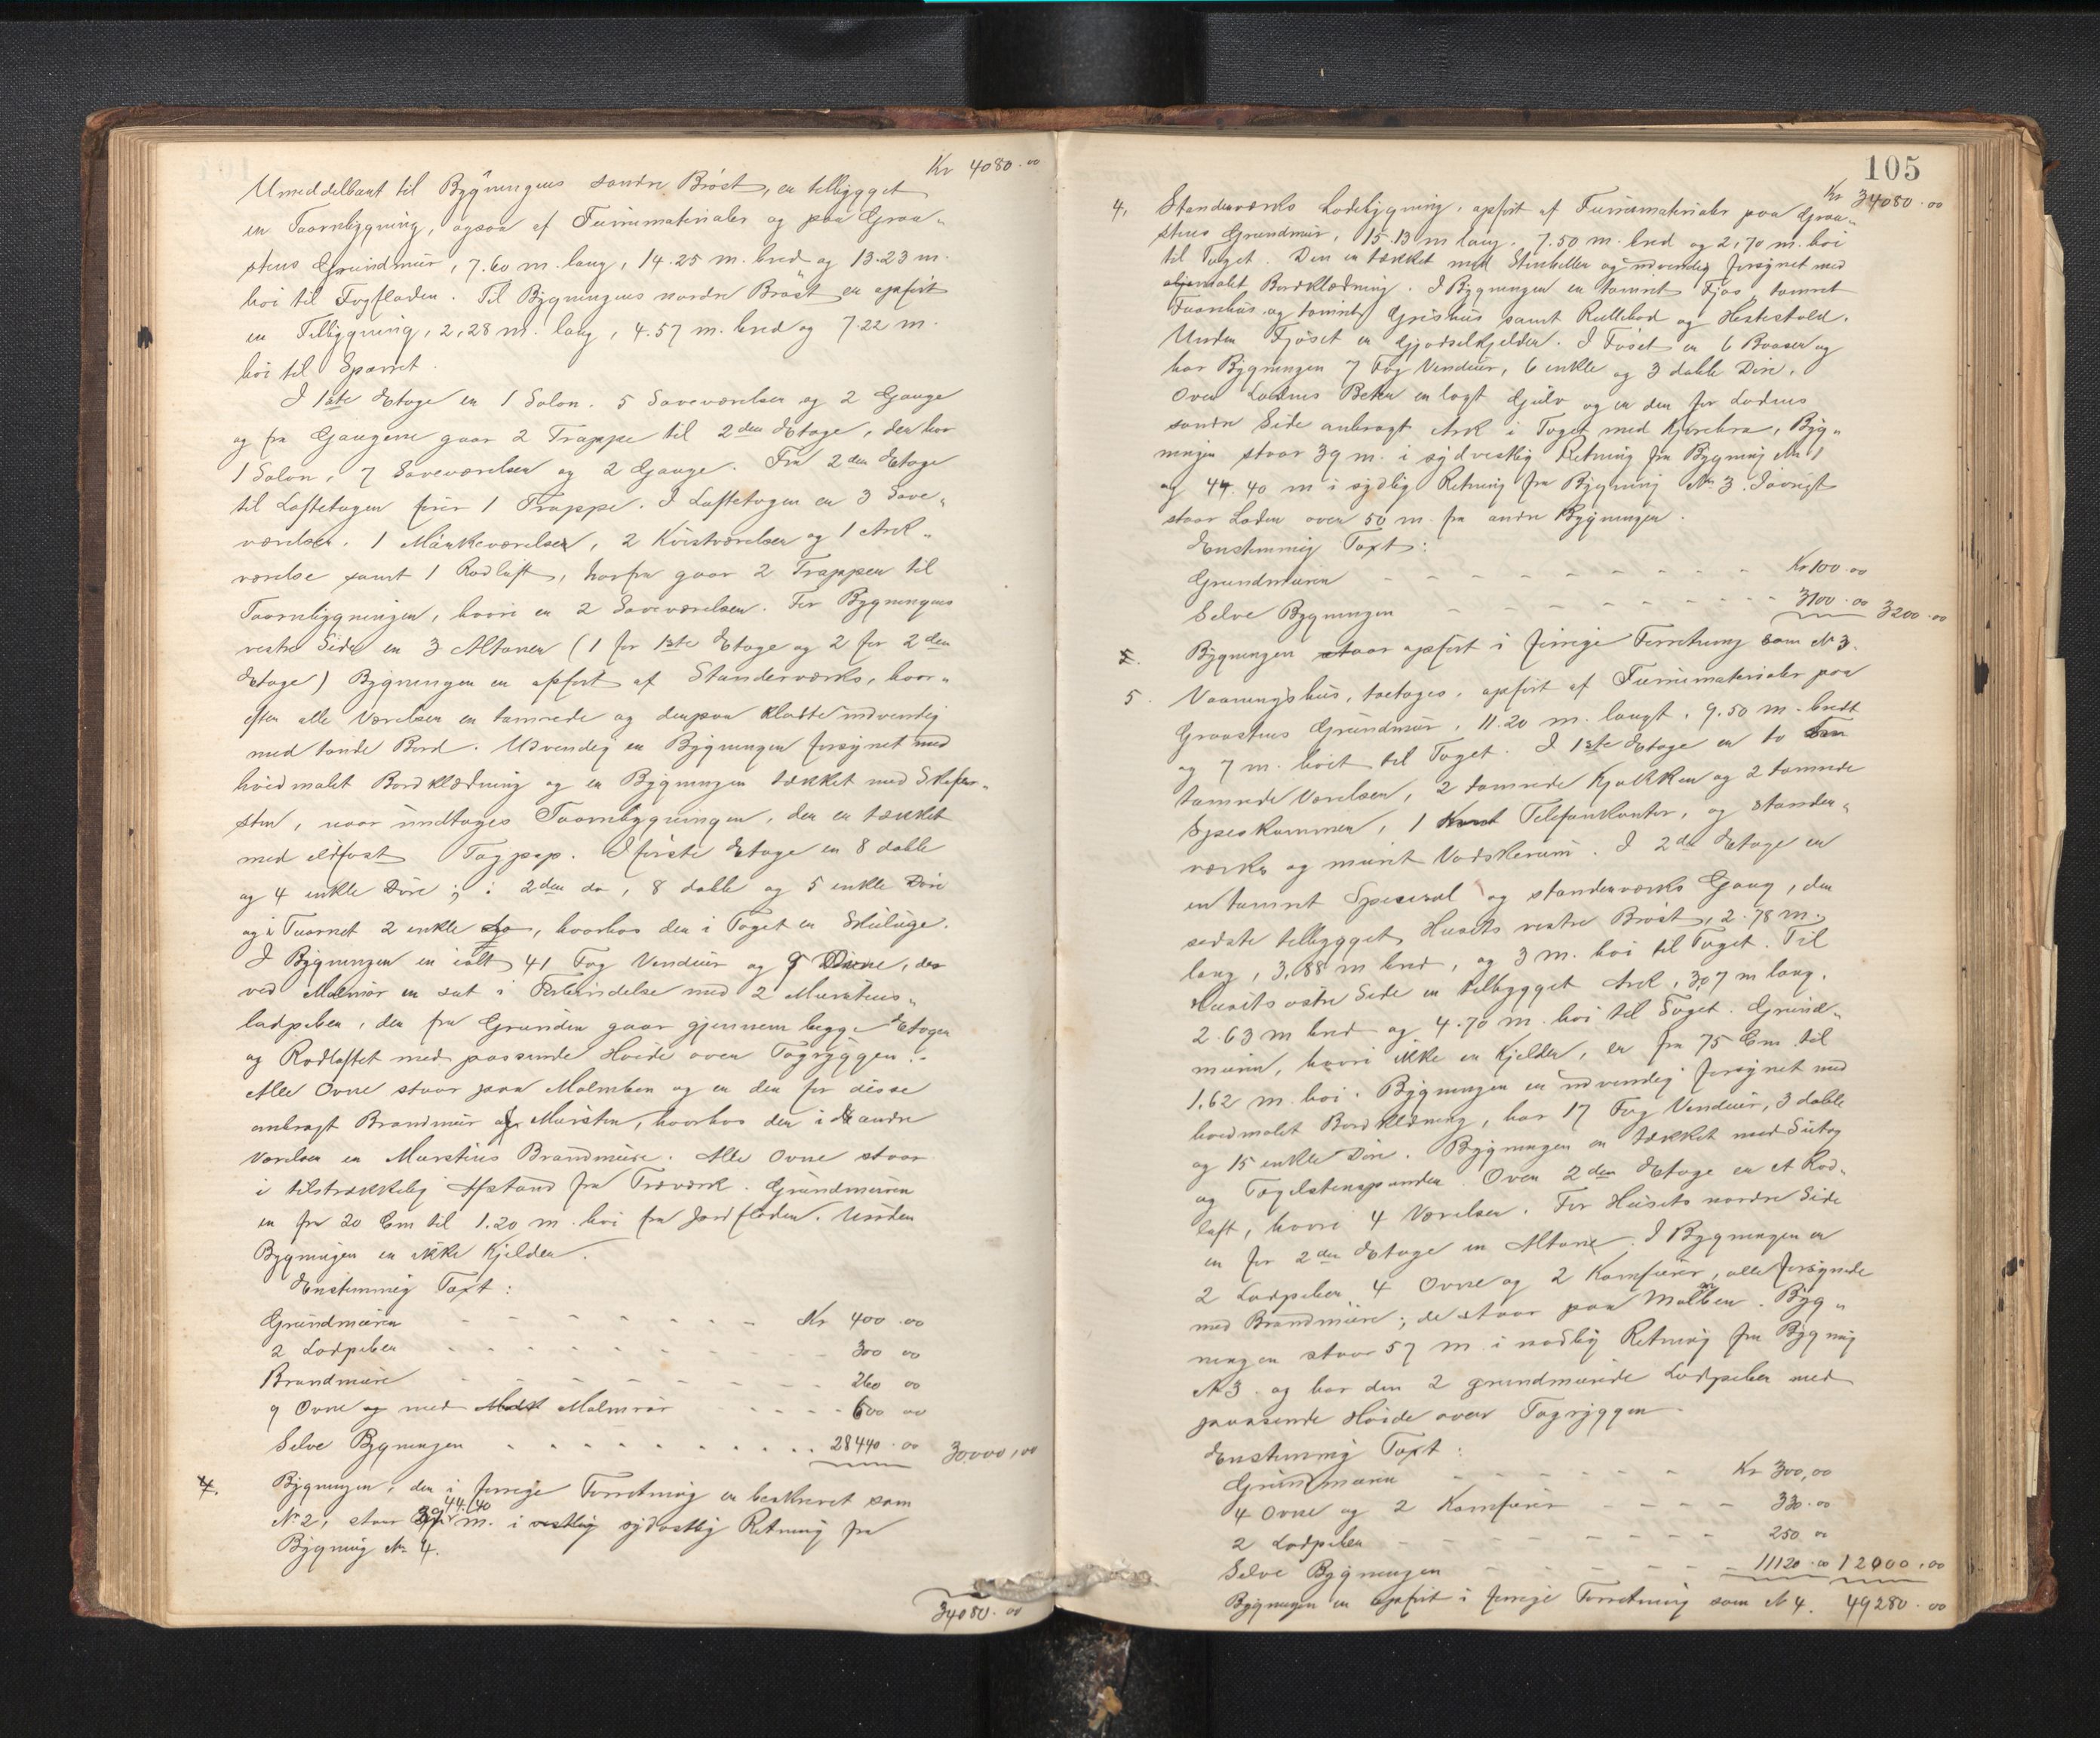 Kr 4080.00
Umiddelbart til Bygningens søndre Brøst, er tilbygget
en Taarnbygning, ogsaa af Furumaterialer og paa Graa-
stens Grundmur, 7.60 m. lang, 14.25 m. bred og 13.23 m.
høi til Tagfladen. Til Bygningens nordre Brøst er opført
en Tilbygning, 2,28 m. lang, 4.57 m. bred og 7.22 m.
høi til Sparret.
I 1ste Etage er 1 Salon. 5 Soveværelser og 2 Gange
og fra Gangene gaar 2 Trappe til 2den Etage, der har
1 Salon, 7 Soveværelser og 2 Gange. Fra 2den Etage
til Loftetagen fører 1 Trappe. I Loftetagen er 3 Sove-
værelser. 1 Mørkeværelse, 2 Kvistværelser og 1 Ark-
værelse samt 1 Rodloft, hvorfra gaar 2 Trapper til
Taarnbygningen, hvori er 2 Soveværelser. For Bygningens
vestre Side er 3 Altaner (1 for 1ste Etage og 2 for 2den
Etage) Bygningen er opført af Standerværks, hvor-
efter alle Værelser er tømrede og derpaa klædte indvendig
med Bord. Udvendig er Bygningen forsynet med
hvidmalet Bordklædning og er Bygningen tækket med Skifer-
sten, naar undtages Taarnbygningen, der er tækket
med ildfast Tagpap. I første Etage er 8 doble
og 4 enkle Døre; i 2den do, 8 doble og 5 enkle Døre
og i Taarnet 2 enkle do, hvorhos der i Taget er Skiluge.
I Bygningen er ialt 41 Fag Vinduer og 9 Ovne, der
ved Malmrør er sat i Forbindelse med 2 Murstens-
ladpiber, der fra Grunden gaar gjennem begge Etager
og Rodloftet med passende Høide over Tagryggen.
Alle Ovne staar paa Malmben og er der for disse
anbragt Brandmur af Mursten, hvorhos der i de andre
Værelser er Murstens Brandmure. Alle Ovne staar
i tilstrækkelig Afstand fra Træværk. Grundmuren
er fra 20 Cm til 1.20 m. høi fra Jordfladen. Under
Bygningen er ikke Kjelder.
Enstemmig Taxt:
Grundmuren - - - - - - - Kr 400.00
2 Ladpiber - - - - - - - 300 00
Brandmure - - - - - - - 260 00
9 Ovne og med Malmrør - - - - - 600 00
Selve Bygningen - - - - - - - 28440.00 30000,00
4. Bygningen, der i forrige Forretning er beskrevet som
N. 2, staar 44.40 m. i vestlig sydvestlig Retning fra
Bygning N. 4.
34080.00
105
Kr 34080.00
4, Standerværks Ladebygning, opført af Furumaterialer paa Graa-
stens Grundmur, 15.13 m lang, 7.50 m. bred og 2,70 m. høi
til Taget. Den er tækket med Stenheller og udvendig forsynet med
oljemalet Bordklædning. I Bygningen er tømret Fjøs, tømret
Faarehus og tømret Grishus samt Rullebod og Hestestald.
Under Fjøset er Gjødselkjelder. I Fjøset er 6 Baaser og
har Bygningen 7 Fag Vinduer, 6 enkle og 3 doble Døre.
Over Ladens Beter er lagt Gulv og er der for Ladens
søndre Side anbragt Ark i Taget med Kjørebro, Byg-
ningen staar 39 m. i sydvestlig Retning fra Bygning No 1
og 44.40 m i sydlig Retning fra Bygning No. 3. Iøvrigt
staar Laden over 50 m. fra andre Bygninger.
Enstemmig Taxt:
Grundmuren - - - - - - - Kr 100.00
Selve Bygningen - - - - - - - 3100.00 3200.00
Bygningen staar opført i forrige Forretning som N 3.
5. Vaaningshus, toetages, opført af Furumaterialer paa
Graastens Grundmur, 11.20 m. langt, 9.50 m. bredt
og 7 m. høit til Taget. I 1ste Etage er to
tømrede Værelser, 2 tømrede Kjøkken og 2 tømrede
Spiskammer, 1 Telefonkontor, og stander-
værks og muret Vadskerum. I 2den Etage er
en tømret Spisesal og standerværks Gang, den
sidste tilbygget Husets vestre Brøst, 2.78 m.
lang, 3.88 m bred, og 3 m. høi til Taget. Til
Husets østre Side er tilbygget Ark, 3,07 m lang,
2.63 m bred og 4.70 m. høi til Taget. Grund-
muren, hvori ikke er Kjelder, er fra 75 Cm til
1.62 m. høi. Bygningen er udvendig forsynet med
hvidmalet Bordklædning, har 17 Fag Vinduer, 3 doble
og 15 enkle Døre. Bygningen er tækket med Sutag
og Tagelstenspander. Over 2den Etage er et Rod-
loft, hvori 4 Værelser. For Husets nordre Side
er for 2den Etage en Altane. I Bygningen er
2 Ladpiber, 4 Ovne og 2 Komfurer, alle forsynede
med Brandmure; de staar paa Malmben. Byg-
ningen staar 57 m. i nordlig Retning fra Bygning
N 3. og har den 2 grundmurede Ladpiber med
passende Høide over Tagryggen.
Enstemmig Taxt:
Grundmuren - - - - - - Kr 300,00
4 Ovne og 2 Komfurer - - - - 330.00
2 Ladpiber - - - - - - - 250 00
Selve Bygningen - - - - - - 11120.00 12000,00
Bygningen er opført i forrige Forretning som N 4. 49280.00